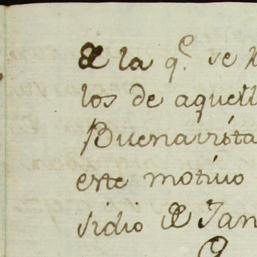 de la q.e se
los de aquell
Buenavista
este motivo
sidio de Jan